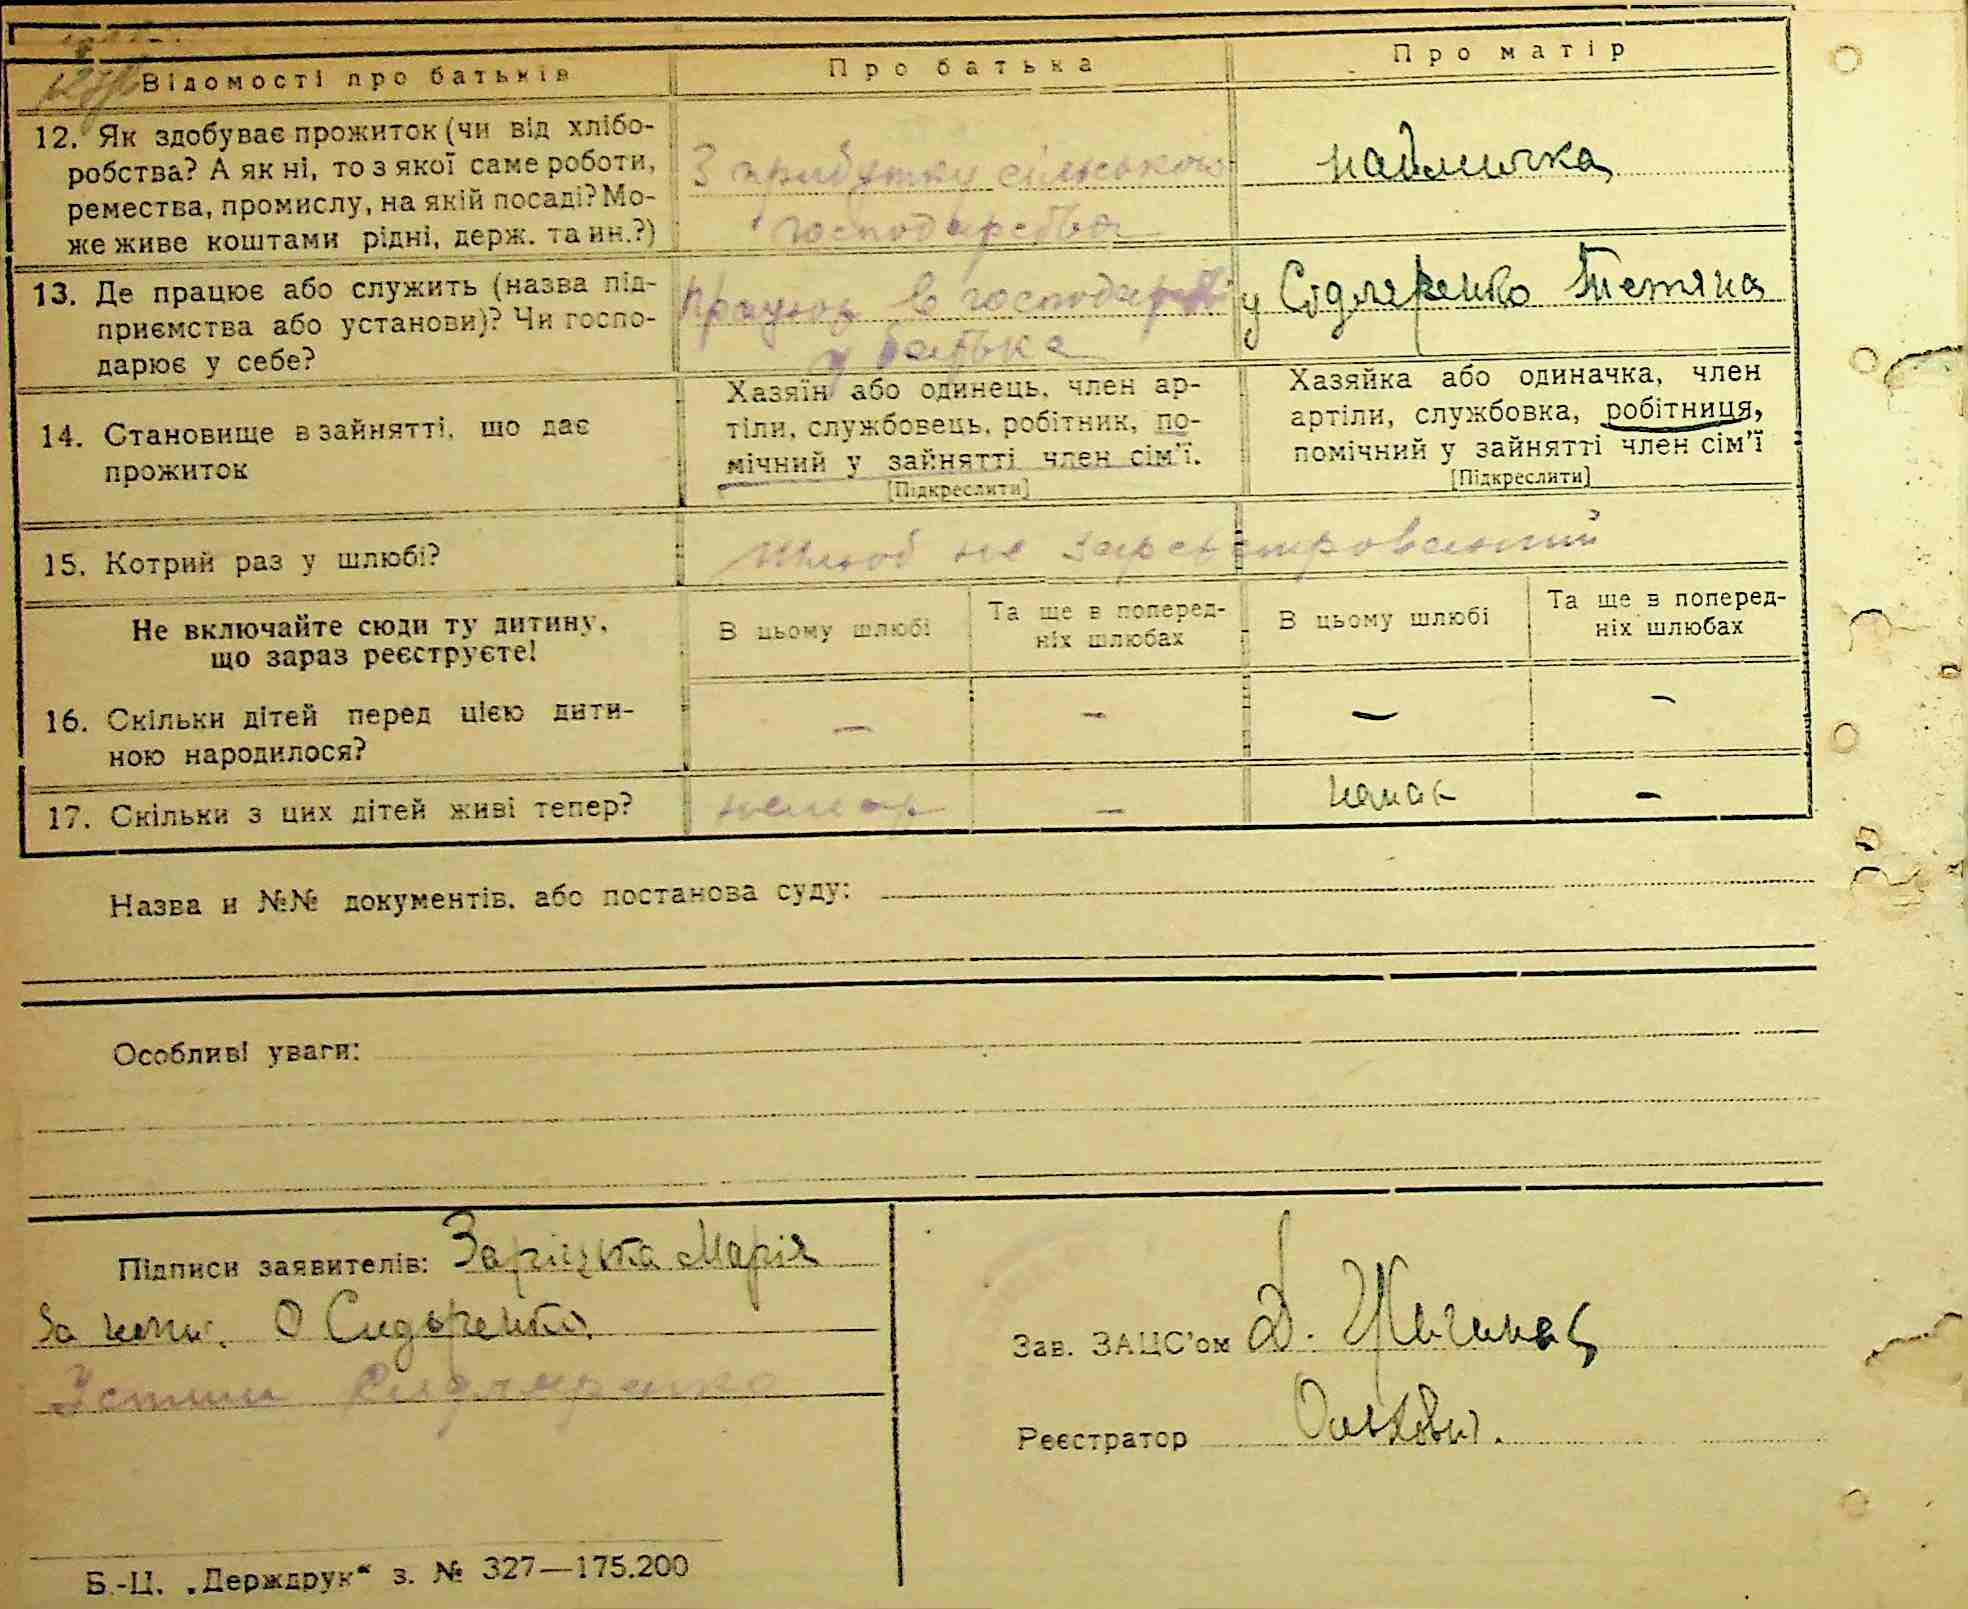 Відомості про батьків Про батька Про матір
12. Як здобуває прожиток (чи від хлібо-
робства? А як ні, то з якої саме роботи,
ремества, промислу, на якій посаді? Мо-
же живе коштами рідні, держ. та ин.?)
З прибутку сільського
господарства
наймичка
13. Де працює або служить (назва під-
приємства або установи)? Чи госпо-
дарює у себе?
працює в господарстві
у батька
у Сідляренко Тетяна
14. Становище в зайнятті, що дає
прожиток
Хазяїн або одинець, член ар-
тіли, службовець, робітник, по-
мічний у зайнятті член сім'ї.
[Підкреслити]
Хазяйка або одиначка, член
артіли, службовка, робітниця,
помічний у зайнятті член сім'ї
[Підкреслити]
15. Котрий раз у шлюбі?
Шлюб не зареєстрований
Не включайте сюди ту дитину,
що зараз реєструєте!
В цьому шлюбі
Та ще в поперед-
ніх шлюбах
В цьому шлюбі
Та ще в поперед-
ніх шлюбах
16. Скільки дітей перед цією дити-
ною народилося?
— — — —
17. Скільки з цих дітей живі тепер?
немає — немає —
Назва и №№ документів, або постанова суду:
Особливі уваги:
Підписи заявителів: Заріцька Марія
За непис. О Сидоренко
Устин Сидляренко
Зав. ЗАЦС'ом Д.
Реєстратор
Б.-Ц. „Держдрук“ з. № 327—175.200